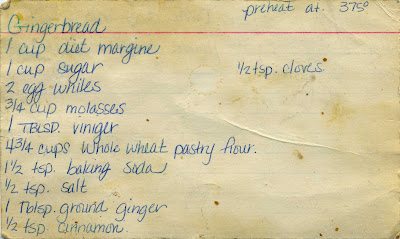 preheat at. 375°
Gingerbread
1 cup diet margine
1 cup sugar
½ tsp. cloves.
2 egg whites
3/4 cup molasses
1 TBLSP. viniger
4 3/4 cups whole wheat pastry flour.
1 ½ tsp. baking soda
½ tsp. salt
1 Tblsp. ground ginger
½ tsp. cinnamon.